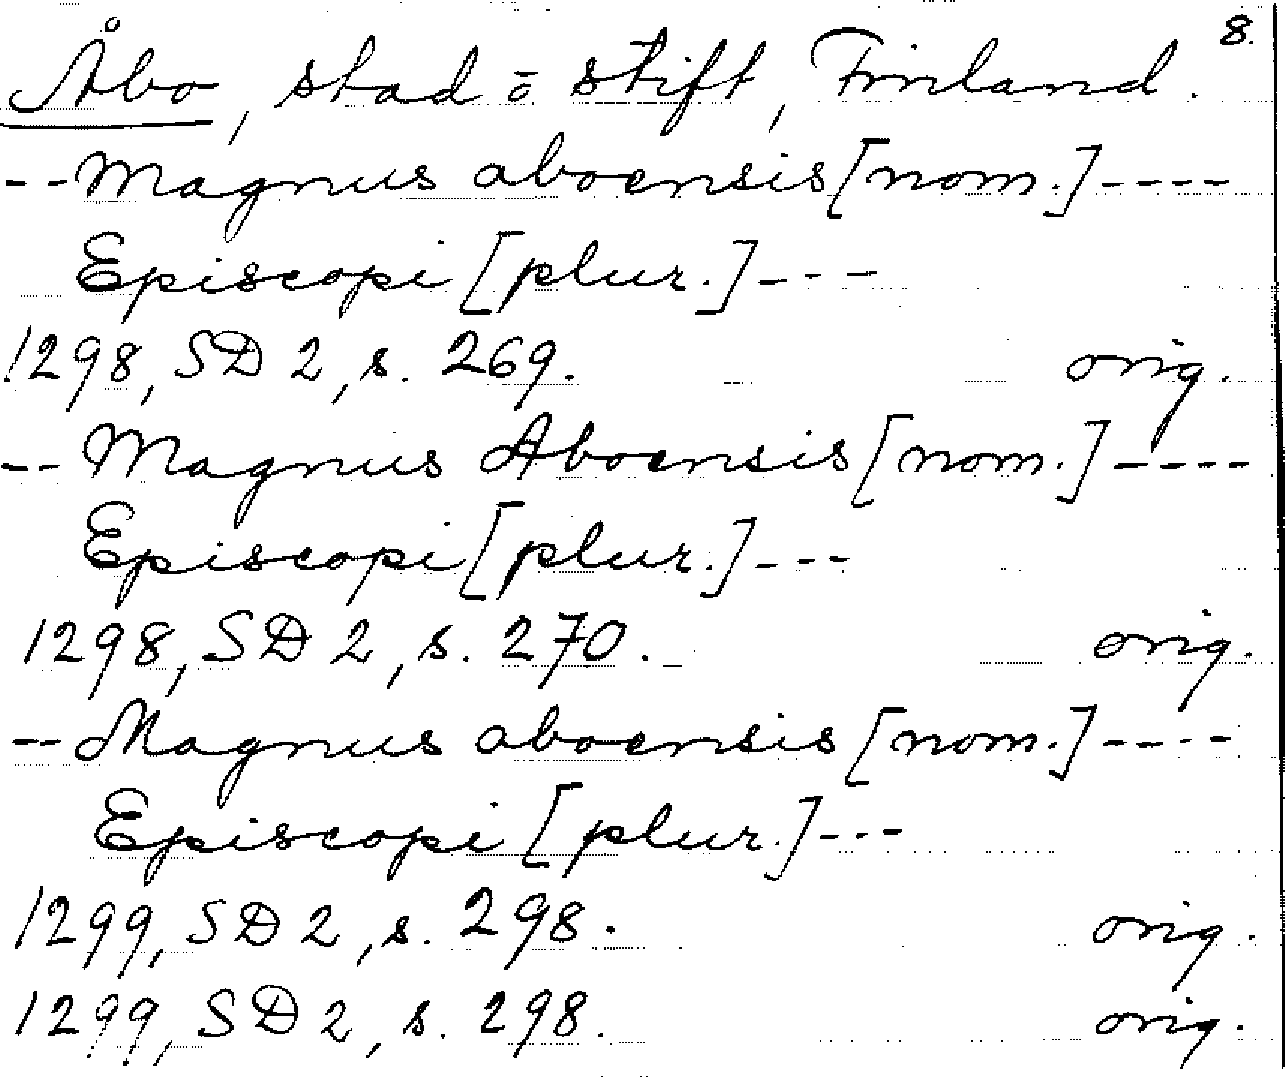 8.
Åbo, stad o stift, Finland.
-- Magnus aboensis [nom.] ----
Episcopi [plur.] ---
1298, SD 2, s. 269. orig.
-- Magnus Aboensis [nom.] ----
Episcopi [plur.] ---
1298, SD 2, s. 270. orig.
-- Magnus aboensis [nom.] ----
Episcopi [plur.] ---
1299, SD 2, s. 298. orig.
1299, SD 2, s. 298. orig.